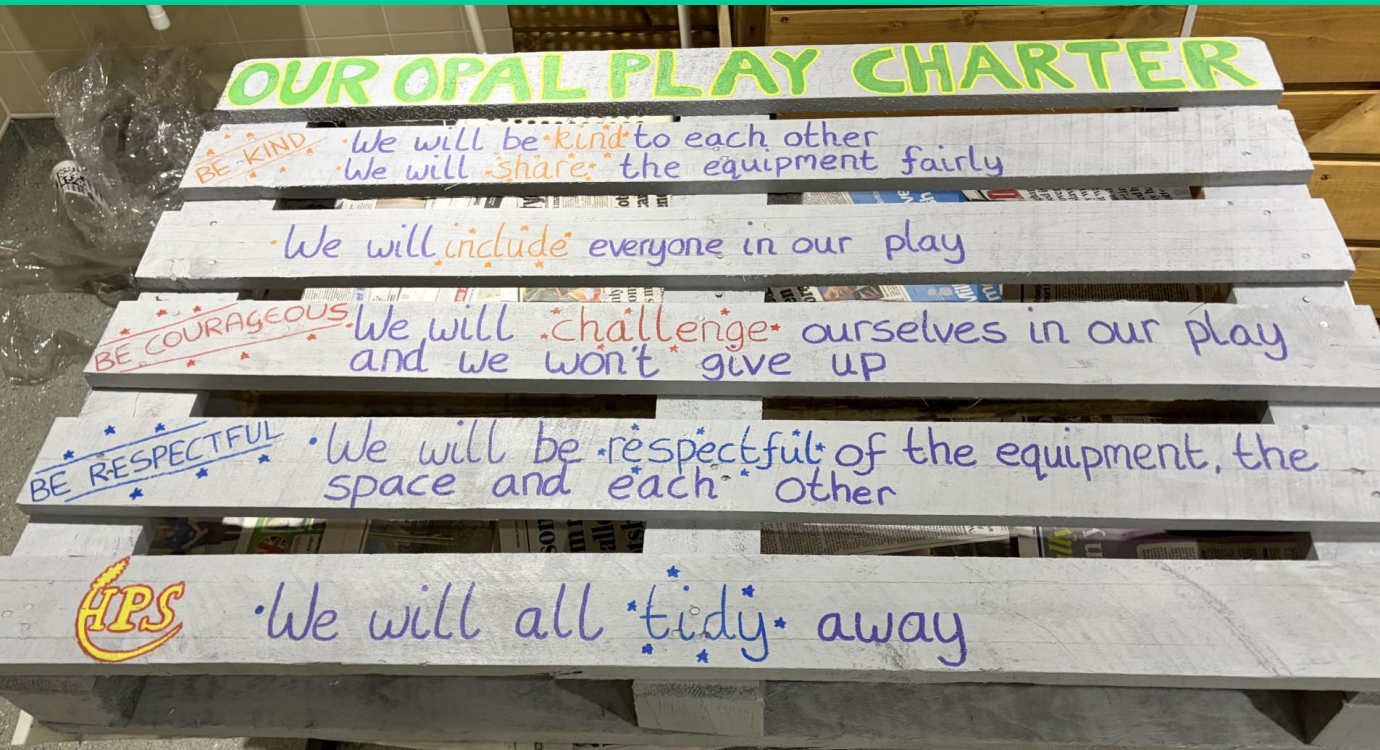 OUR OPAL PLAY CHARTER
BE KIND
·We will be kind to each other
·We will share the equipment fairly
·We will include everyone in our play
BE COURAGEOUS
·We will challenge ourselves in our play
and we won't give up
BE RESPECTFUL
·We will be respectful of the equipment, the
space and each other
HPS
·We will all tidy away